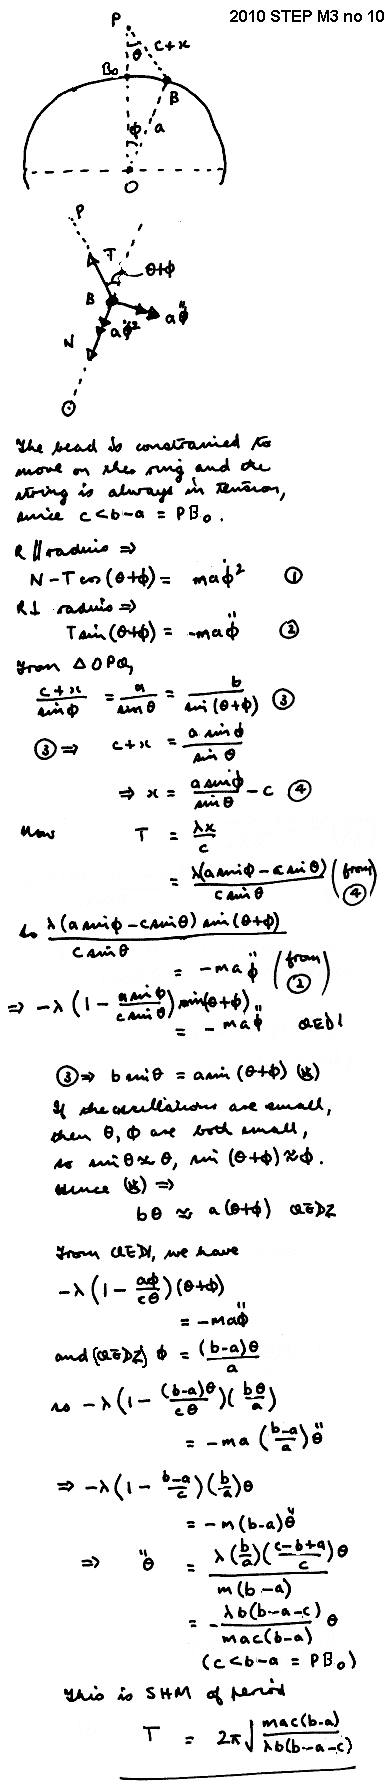 2010 STEP M3 no 10
P
θ
c+x
B₀
B
φ
a
O
P
T
θ+φ
B
aφ̈
aφ̇²
N
O
The bead is constrained to
move on the ring and the
string is always in tension,
since c < b-a = PB₀.
R // radius ⇒
N - T cos (θ+φ) = maφ̇² ①
R⊥ radius ⇒
T sin (θ+φ) = -maφ̈ ②
From △OPQ,
(c+x)/sin φ = a/sin θ = b/sin (θ+φ) ③
③ ⇒ c+x = a sin φ/sin θ
⇒ x = a sin φ/sin θ - c ④
Now T = λx/c
= λ(a sin φ - c sin θ)/(c sin θ) (from ④)
so λ(a sin φ - c sin θ) sin (θ+φ)/(c sin θ)
= -maφ̈ (from ②)
⇒ -λ (1 - a sin φ/(c sin θ)) sin (θ+φ)
= -maφ̈ QED1
③ ⇒ b sin θ = a sin (θ+φ) (*)
If the oscillations are small,
then θ, φ are both small,
so sin θ ≈ θ, sin (θ+φ) ≈ φ.
Hence (*) ⇒
bθ ≈ a(θ+φ) QED2
From QED1, we have
-λ (1 - aφ/(cθ)) (θ+φ)
= -maφ̈
and (QED2) φ = (b-a)θ/a
so -λ (1 - (b-a)θ/(cθ)) (bθ/a)
= -ma ((b-a)/a) θ̈
⇒ -λ (1 - (b-a)/c) (b/a) θ
= -m(b-a)θ̈
⇒ θ̈ = λ(b/a)((c-b+a)/c) θ/(m(b-a))
= - λb(b-a-c)/(mac(b-a)) θ
(c < b-a = PB₀)
This is SHM of period
T = 2π√(mac(b-a)/(λb(b-a-c)))